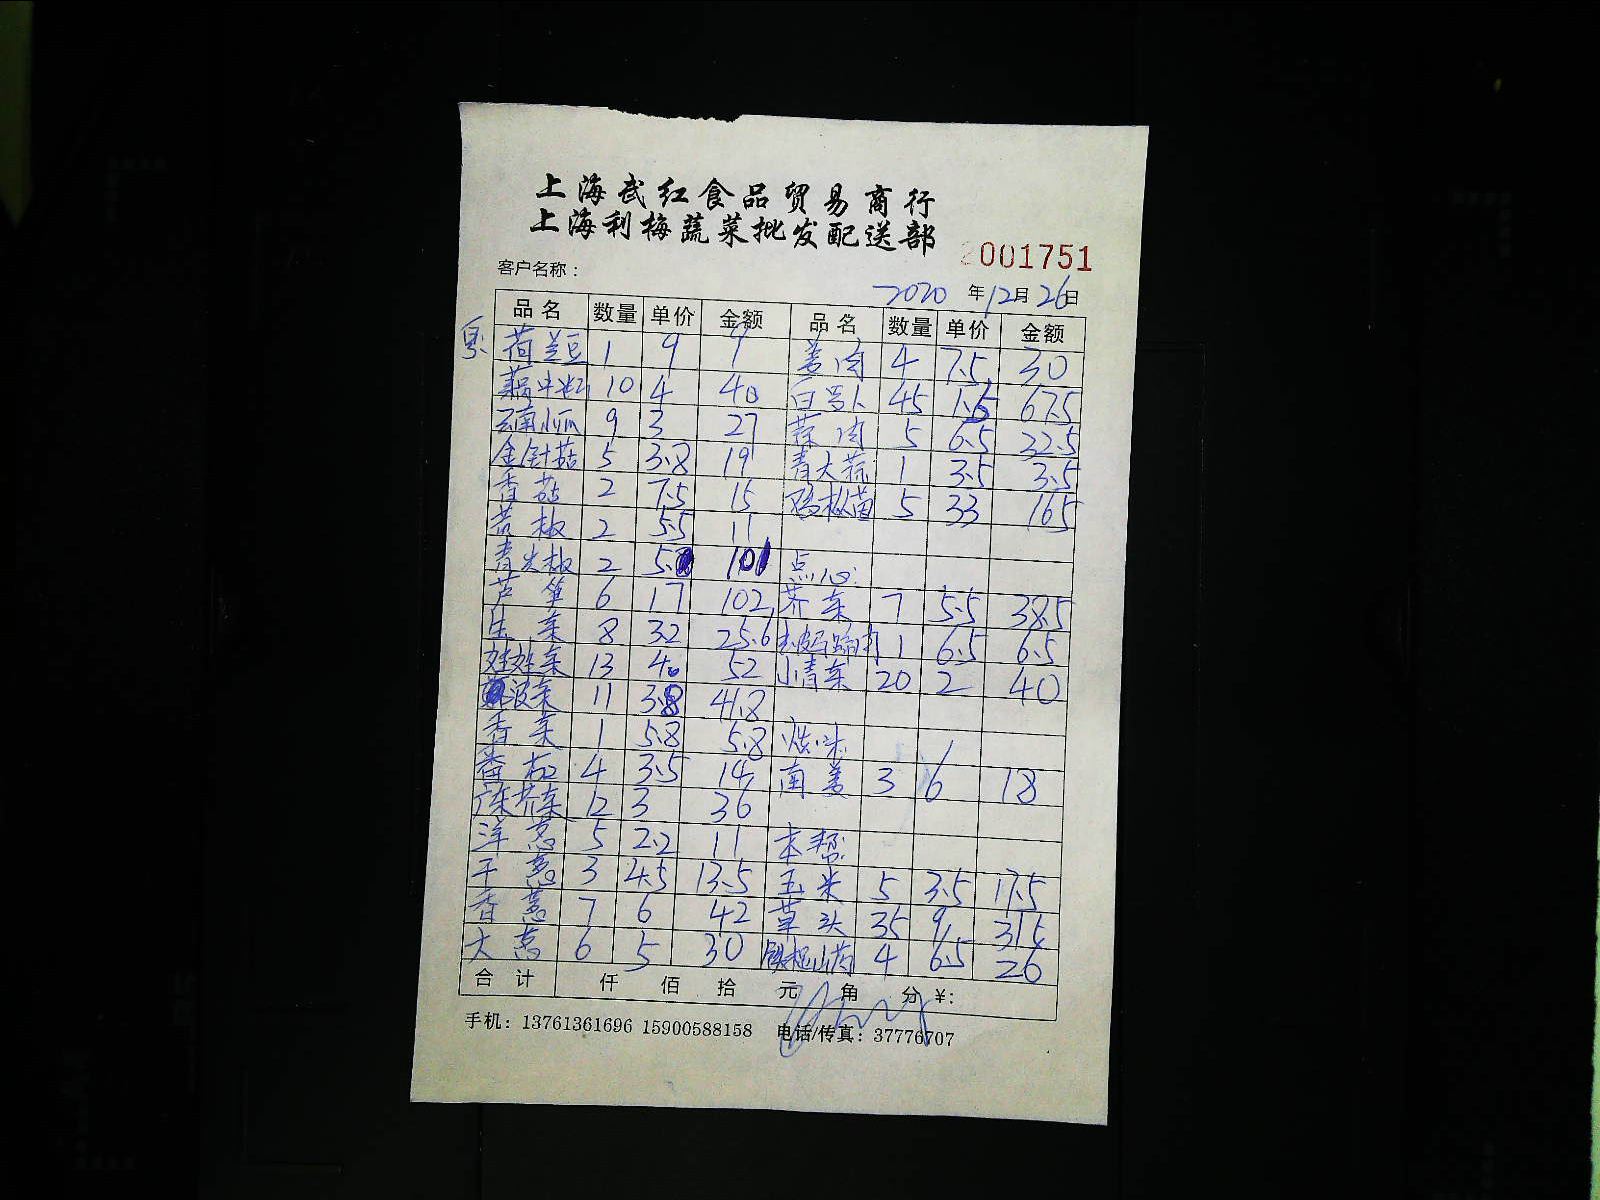 上海武红食品贸易商行
上海利梅蔬菜批发配送部
2001751
客户名称：
2020 年 12 月 26 日
品名 数量 单价 金额 品名 数量 单价 金额
荷兰豆 1 9 9 姜肉 4 7.5 30
10 4 40 白萝卜 45 1.5 67.5
云南小瓜 9 3 27 蒜肉 5 6.5 32.5
金针菇 5 3.8 19 青大蒜 1 3.5 3.5
香菇 2 7.5 15 鸡枞菌 5 33 165
椒 2 5.5 11
青尖椒 2 5. 10 点心:
芦笋 6 17 102 荠菜 7 5.5 38.5
生菜 8 3.2 25.6 去皮马蹄 1 6.5 6.5
娃娃菜 13 4 52 小青菜 20 2 40
菠菜 11 3.8 41.8
香菜 1 5.8 5.8 烧味
番茄 4 3.5 14 南姜 3 6 18
广东芥菜 12 3 36
洋葱 5 2.2 11 本帮
干葱 3 4.5 13.5 玉米 5 3.5 17.5
香葱 7 6 42 草头 35 9 315
大葱 6 5 30 铁棍山药 4 6.5 26
合计 仟 佰 拾 元 角 分 ¥:
手机：13761361696 15900588158 电话/传真：37776707